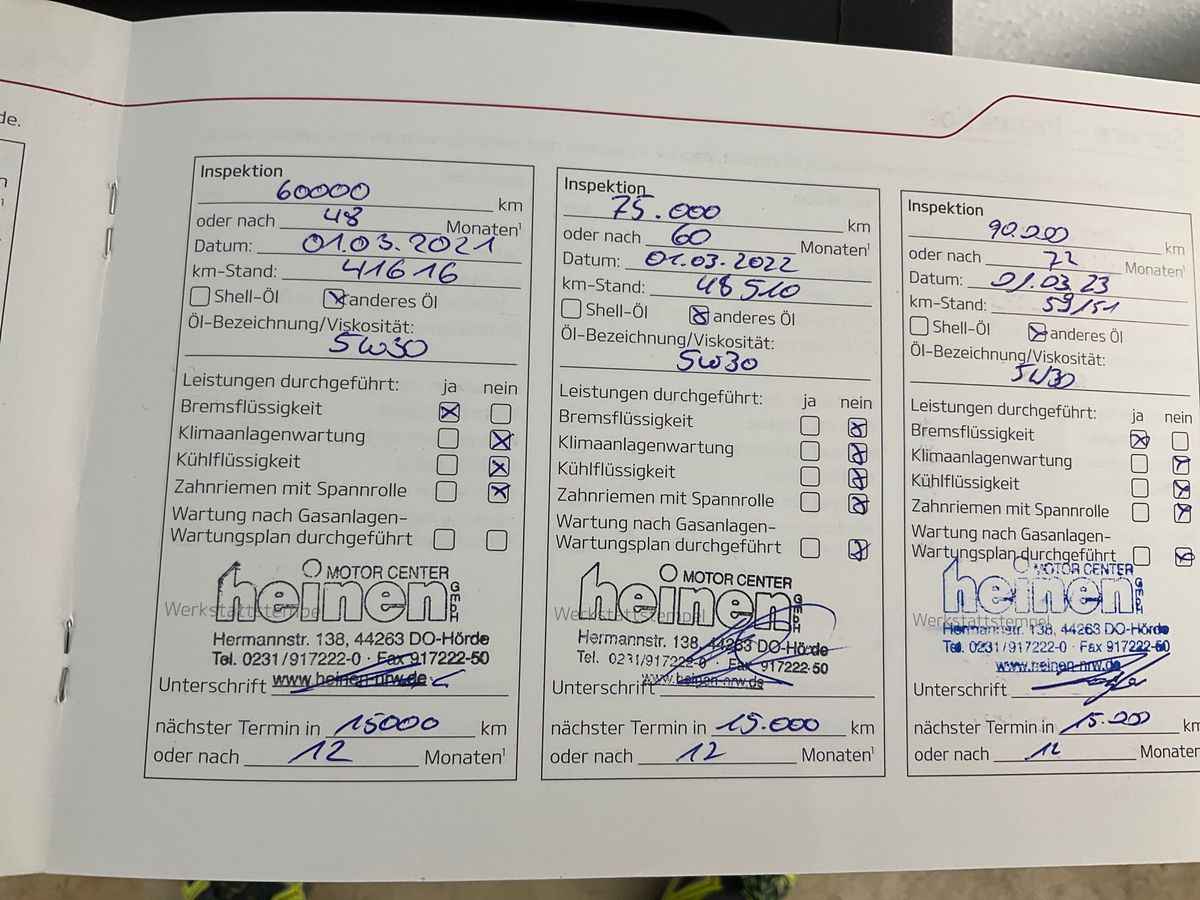 de.
Inspektion
60000 km
oder nach 48 Monaten¹
Datum: 01.03.2021
km-Stand: 41616
Shell-Öl anderes Öl
Öl-Bezeichnung/Viskosität:
5W30
Leistungen durchgeführt: ja nein
Bremsflüssigkeit
Klimaanlagenwartung
Kühlflüssigkeit
Zahnriemen mit Spannrolle
Wartung nach Gasanlagen-
Wartungsplan durchgeführt
heinen MOTOR CENTER GmbH
Werkstattstempel
Hermannstr. 138, 44263 DO-Hörde
Tel. 0231/917222-0 · Fax 917222-50
www.heinen-nrw.de
Unterschrift
nächster Termin in 15000 km
oder nach 12 Monaten¹
Inspektion
75.000 km
oder nach 60 Monaten¹
Datum: 01.03.2022
km-Stand: 48510
Shell-Öl anderes Öl
Öl-Bezeichnung/Viskosität:
5W30
Leistungen durchgeführt: ja nein
Bremsflüssigkeit
Klimaanlagenwartung
Kühlflüssigkeit
Zahnriemen mit Spannrolle
Wartung nach Gasanlagen-
Wartungsplan durchgeführt
heinen MOTOR CENTER GmbH
Werkstattstempel
Hermannstr. 138, 44263 DO-Hörde
Tel. 0231/917222-0 · Fax 917222-50
www.heinen-nrw.de
Unterschrift
nächster Termin in 15.000 km
oder nach 12 Monaten¹
Inspektion
90.000 km
oder nach 72 Monaten¹
Datum: 01.03.23
km-Stand: 59151
Shell-Öl anderes Öl
Öl-Bezeichnung/Viskosität:
5W30
Leistungen durchgeführt: ja nein
Bremsflüssigkeit
Klimaanlagenwartung
Kühlflüssigkeit
Zahnriemen mit Spannrolle
Wartung nach Gasanlagen-
Wartungsplan durchgeführt
heinen MOTOR CENTER GmbH
Werkstattstempel
Hermannstr. 138, 44263 DO-Hörde
Tel. 0231/917222-0 · Fax 917222-50
www.heinen-nrw.de
Unterschrift
nächster Termin in 15.000 km
oder nach 12 Monaten¹